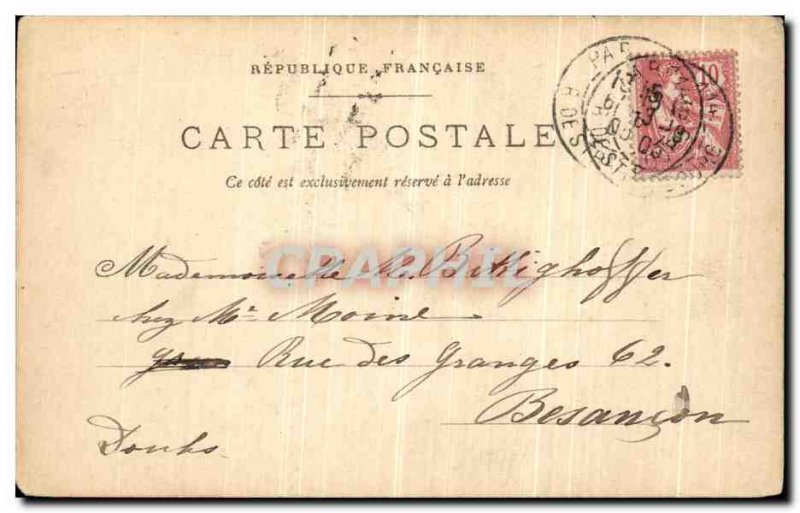 RÉPUBLIQUE FRANÇAISE
CARTE POSTALE
Ce côté est exclusivement réservé à l'adresse
10
CRAPHIL
Mademoiselle M. Bittighoffer
chez Mr Moine
Rue des Granges 62.
Besançon
Doubs